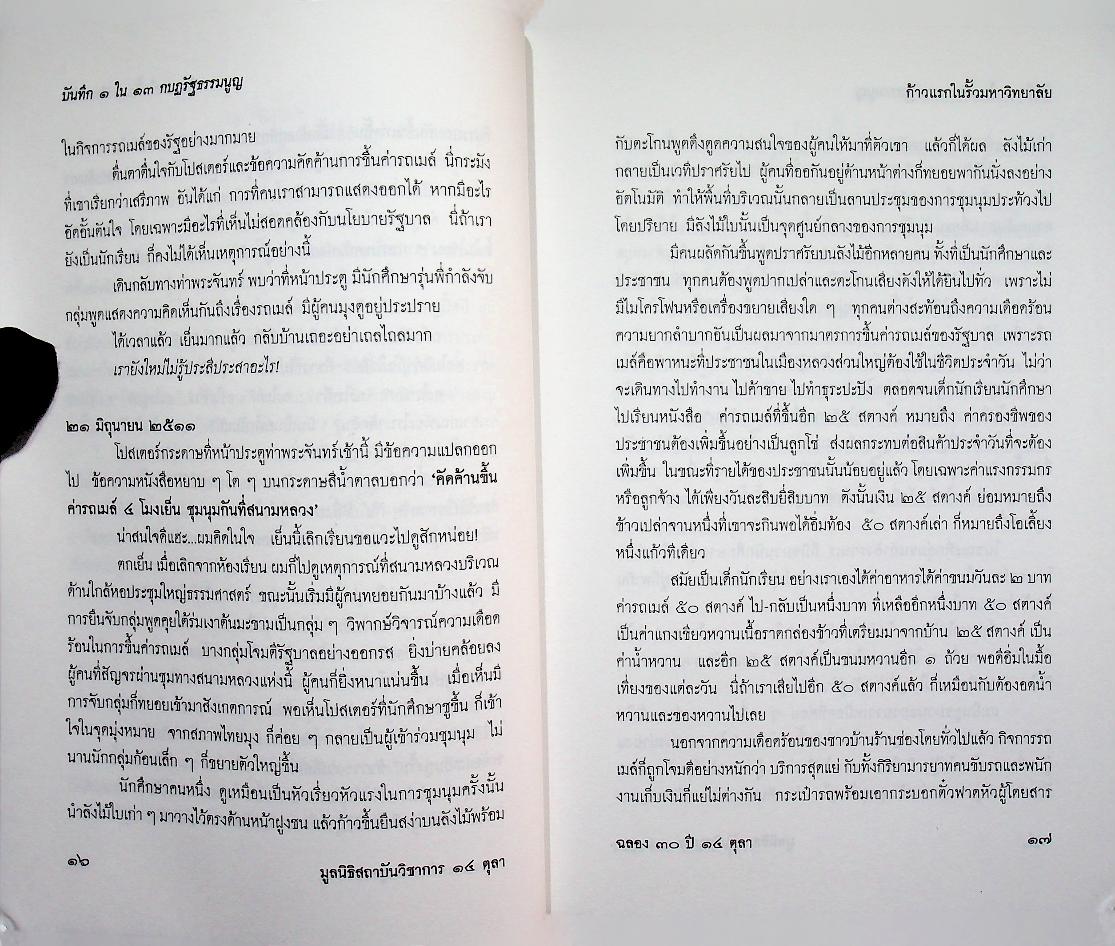 บันทึก ๑ ใน ๑๓ กบฏรัฐธรรมนูญ
ในกิจการรถเมล์ของรัฐอย่างมากมาย
ตื่นตาตื่นใจกับโปสเตอร์และข้อความคัดค้านการขึ้นค่ารถเมล์ นี่กระมัง
ที่เขาเรียกว่าเสรีภาพ อันได้แก่ การที่คนเราสามารถแสดงออกได้ หากมีอะไร
อัดอั้นตันใจ โดยเฉพาะมีอะไรที่เห็นไม่สอดคล้องกับนโยบายรัฐบาล นี่ถ้าเรา
ยังเป็นนักเรียน ก็คงไม่ได้เห็นเหตุการณ์อย่างนี้
เดินกลับทางท่าพระจันทร์ พบว่าที่หน้าประตู มีนักศึกษารุ่นพี่กำลังจับ
กลุ่มพูดแสดงความคิดเห็นกันถึงเรื่องรถเมล์ มีผู้คนมุงดูอยู่ประปราย
ได้เวลาแล้ว เย็นมากแล้ว กลับบ้านเถอะอย่าเถลไถลมาก
เรายังใหม่ไม่รู้ประสีประสาอะไร!
๒๑ มิถุนายน ๒๕๑๑
โปสเตอร์กระดาษที่หน้าประตูท่าพระจันทร์เช้านี้ มีข้อความแปลกออก
ไป ข้อความหนังสือหยาบ ๆ โต ๆ บนกระดาษสีน้ำตาลบอกว่า ‘คัดค้านขึ้น
ค่ารถเมล์ ๔ โมงเย็น ชุมนุมกันที่สนามหลวง’
น่าสนใจดีแฮะ...ผมคิดในใจ เย็นนี้เลิกเรียนขอแวะไปดูสักหน่อย!
ตกเย็น เมื่อเลิกจากห้องเรียน ผมก็ไปดูเหตุการณ์ที่สนามหลวงบริเวณ
ด้านใกล้หอประชุมใหญ่ธรรมศาสตร์ ขณะนั้นเริ่มมีผู้คนทยอยกันมาบ้างแล้ว มี
การยืนจับกลุ่มพูดคุยใต้ร่มเงาต้นมะขามเป็นกลุ่ม ๆ วิพากษ์วิจารณ์ความเดือด
ร้อนในการขึ้นค่ารถเมล์ บางกลุ่มโจมตีรัฐบาลอย่างออกรส ยิ่งบ่ายคล้อยลง
ผู้คนที่สัญจรผ่านชุมทางสนามหลวงแห่งนี้ ผู้คนก็ยิ่งหนาแน่นขึ้น เมื่อเห็นมี
การจับกลุ่มก็ทยอยเข้ามาสังเกตการณ์ พอเห็นโปสเตอร์ที่นักศึกษาชูขึ้น ก็เข้า
ใจในจุดมุ่งหมาย จากสภาพไทยมุง ก็ค่อย ๆ กลายเป็นผู้เข้าร่วมชุมนุม ไม่
นานนักกลุ่มก้อนเล็ก ๆ ก็ขยายตัวใหญ่ขึ้น
นักศึกษาคนหนึ่ง ดูเหมือนเป็นหัวเรี่ยวหัวแรงในการชุมนุมครั้งนั้น
นำลังไม้ใบเก่า ๆ มาวางไว้ตรงด้านหน้าฝูงชน แล้วก้าวขึ้นยืนสง่าบนลังไม้พร้อม
๑๖
มูลนิธิสถาบันวิชาการ ๑๔ ตุลา
ก้าวแรกในรั้วมหาวิทยาลัย
กับตะโกนพูดดึงดูดความสนใจของผู้คนให้มาที่ตัวเขา แล้วก็ได้ผล ลังไม้เก่า
กลายเป็นเวทีปราศรัยไป ผู้คนที่ออกันอยู่ด้านหน้าต่างก็ทยอยพากันนั่งลงอย่าง
อัตโนมัติ ทำให้พื้นที่บริเวณนั้นกลายเป็นลานประชุมของการชุมนุมประท้วงไป
โดยปริยาย มีลังไม้ใบนั้นเป็นจุดศูนย์กลางของการชุมนุม
มีคนผลัดกันขึ้นพูดปราศรัยบนลังไม้อีกหลายคน ทั้งที่เป็นนักศึกษาและ
ประชาชน ทุกคนต้องพูดปากเปล่าและตะโกนเสียงดังให้ได้ยินไปทั่ว เพราะไม่
มีไมโครโฟนหรือเครื่องขยายเสียงใด ๆ ทุกคนต่างสะท้อนถึงความเดือดร้อน
ความยากลำบากอันเป็นผลมาจากมาตรการขึ้นค่ารถเมล์ของรัฐบาล เพราะรถ
เมล์คือพาหนะที่ประชาชนในเมืองหลวงส่วนใหญ่ต้องใช้ในชีวิตประจำวัน ไม่ว่า
จะเดินทางไปทำงาน ไปค้าขาย ไปทำธุระปะปัง ตลอดจนเด็กนักเรียนนักศึกษา
ไปเรียนหนังสือ ค่ารถเมล์ที่ขึ้นอีก ๒๕ สตางค์ หมายถึง ค่าครองชีพของ
ประชาชนต้องเพิ่มขึ้นอย่างเป็นลูกโซ่ ส่งผลกระทบต่อสินค้าประจำวันที่จะต้อง
เพิ่มขึ้น ในขณะที่รายได้ของประชาชนนั้นน้อยอยู่แล้ว โดยเฉพาะค่าแรงกรรมกร
หรือลูกจ้าง ได้เพียงวันละสิบยี่สิบบาท ดังนั้นเงิน ๒๕ สตางค์ ย่อมหมายถึง
ข้าวเปล่าจานหนึ่งที่เขาจะกินพอได้อิ่มท้อง ๕๐ สตางค์เล่า ก็หมายถึงโอเลี้ยง
หนึ่งแก้วทีเดียว
สมัยเป็นเด็กนักเรียน อย่างเราเองได้ค่าอาหารได้ค่าขนมวันละ ๒ บาท
ค่ารถเมล์ ๕๐ สตางค์ ไป-กลับเป็นหนึ่งบาท ที่เหลืออีกหนึ่งบาท ๕๐ สตางค์
เป็นค่าแกงเขียวหวานเนื้อราดกล่องข้าวที่เตรียมมาจากบ้าน ๒๕ สตางค์ เป็น
ค่าน้ำหวาน และอีก ๒๕ สตางค์เป็นขนมหวานอีก ๑ ถ้วย พอดีอิ่มในมื้อ
เที่ยงของแต่ละวัน นี่ถ้าเราเสียไปอีก ๕๐ สตางค์แล้ว ก็เหมือนกับต้องอดน้ำ
หวานและของหวานไปเลย
นอกจากความเดือดร้อนของชาวบ้านร้านช่องโดยทั่วไปแล้ว กิจการรถ
เมล์ก็ถูกโจมตีอย่างหนักว่า บริการสุดแย่ กับทั้งกิริยามารยาทคนขับรถและพนัก
งานเก็บเงินก็แย่ไม่ต่างกัน กระเป๋ารถพร้อมเอากระบอกตั๋วฟาดหัวผู้โดยสาร
ฉลอง ๓๐ ปี ๑๔ ตุลา
๑๗